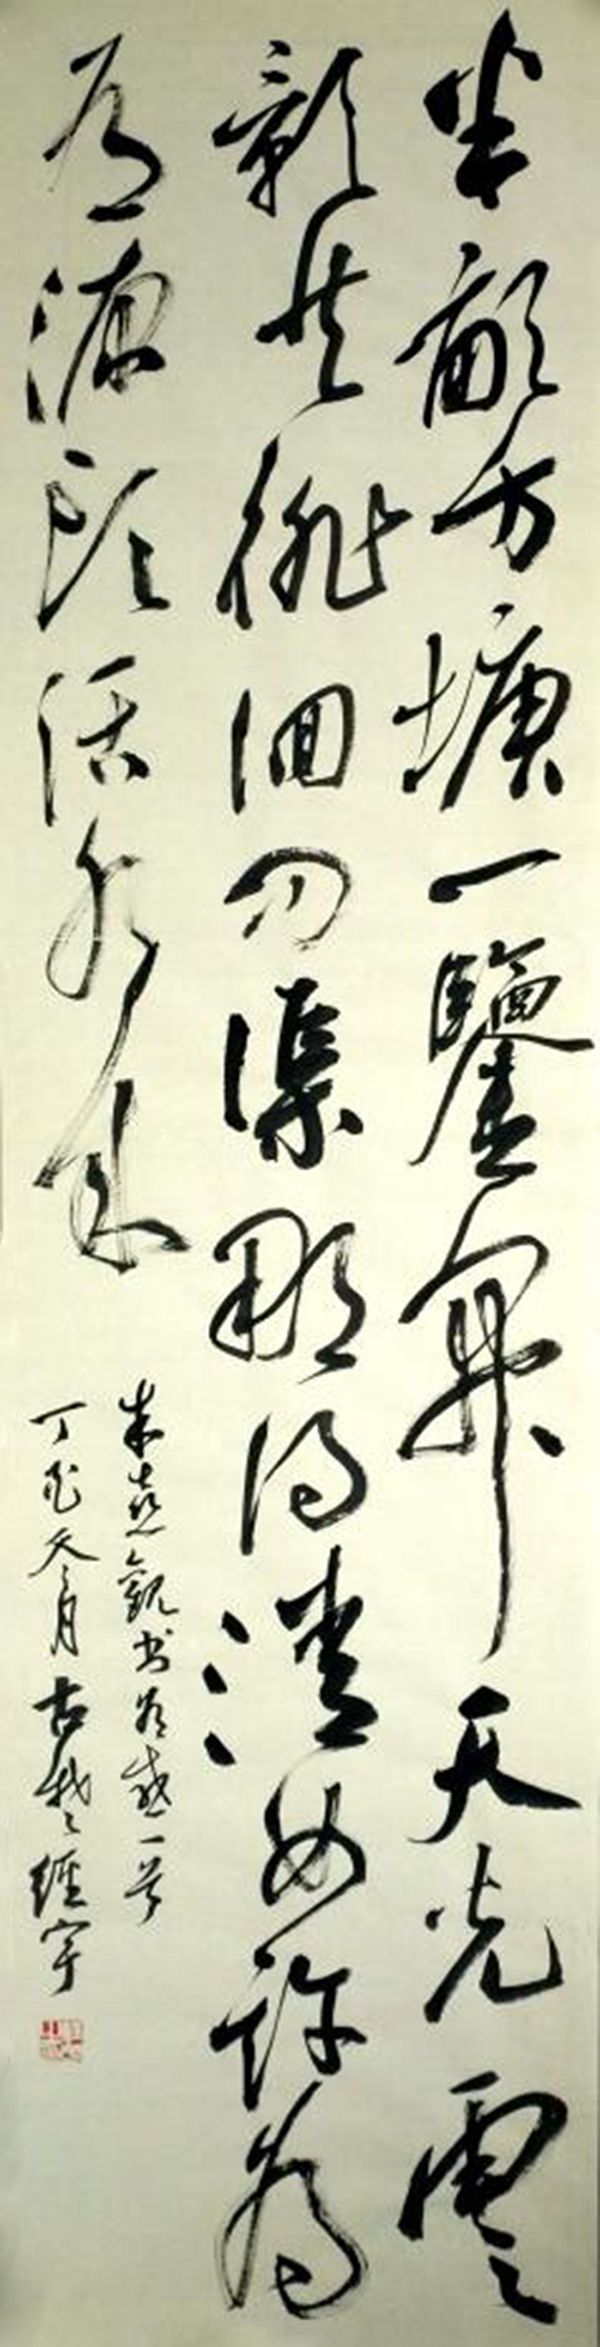 半畝方塘一鑒開天光雲
影共徘徊問渠那得清如許為
有源頭活水來
朱熹觀書有感一首
丁 冬月古 經宇